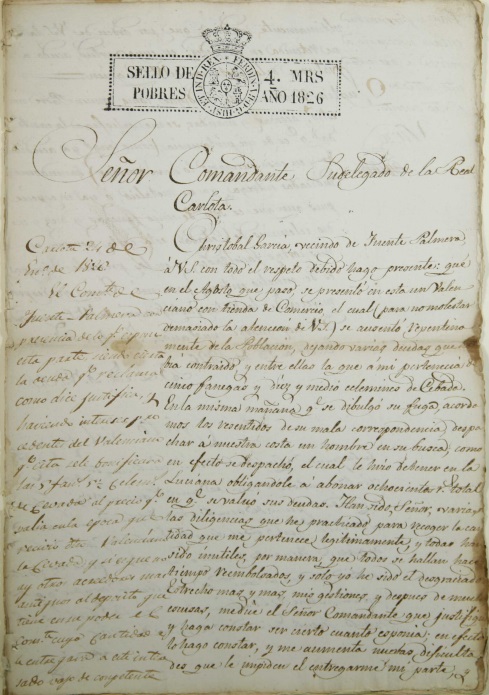 SELLO DE POBRES
4. MRS AÑO 1826
HISP. ET IND. REX
FERDIN. VII. D. G.
Señor Comandante Sudelegado de la Real
Carlota.
Christobal Garcia, vecino de Fuente Palmera,
á V.S. con todo el respeto debido hago presente: que
en el Agosto que pasó se presentó en esta un Valen
ciano con tienda de Comercio el cual (para no molestar
demasiado la atencion de V.S.) se ausentó repentina
mente de la Poblacion, dejando varias deudas que
bía contraido, y entre ellas la que a mi pertenencia
cinco fanegas y diez y medio celemines de Cebada.
En la misma mañana q.e se dibulgó su fuga, acorda
mos los resentidos de su mala correspondencia despa
char á nuestra costa un hombre en su busca, como
en efecto se despachó, el cual le hizo detener en la
Luciana obligandole a abonar ochocientos r.s total
en q.e se valuó sus deudas. Han sido, Señor, varias
las diligencias que he practicado para recoger la can
tidad que me pertenece legitimamente, y todas han
sido inutiles, por manera, que todos se hallan hace
tiempo reembolsados, y solo yo he sido el desgraciado
Estrecho mas y mas, mis gestiones, y despues de muchas
cosas, me dice el Señor Comandante que justifique
y haga constar ser cierto cuanto esponia; en efecto
lo hago constar, y me aumenta nuevas dificulta
des que le impiden el entregarme mi parte,
Carlota 24 de
En.o de 1826
El Com.te de
Fuente Palmera con
presencia de lo q.e espone
esta parte siendo cierta
la deuda q.e reclama
como dice justifica, y
haciendo
del Valenciano
q.e esta
las 5 fan.s
de Cevada al precio q.e
valia en la epoca que
recivió dho Valenciano
la Cevada, y si
otros acreedores mas
antiguos al deposito que
tiene en su poder el
Com.te cuya cantidad
entregará a este intere
sado vajo de competente